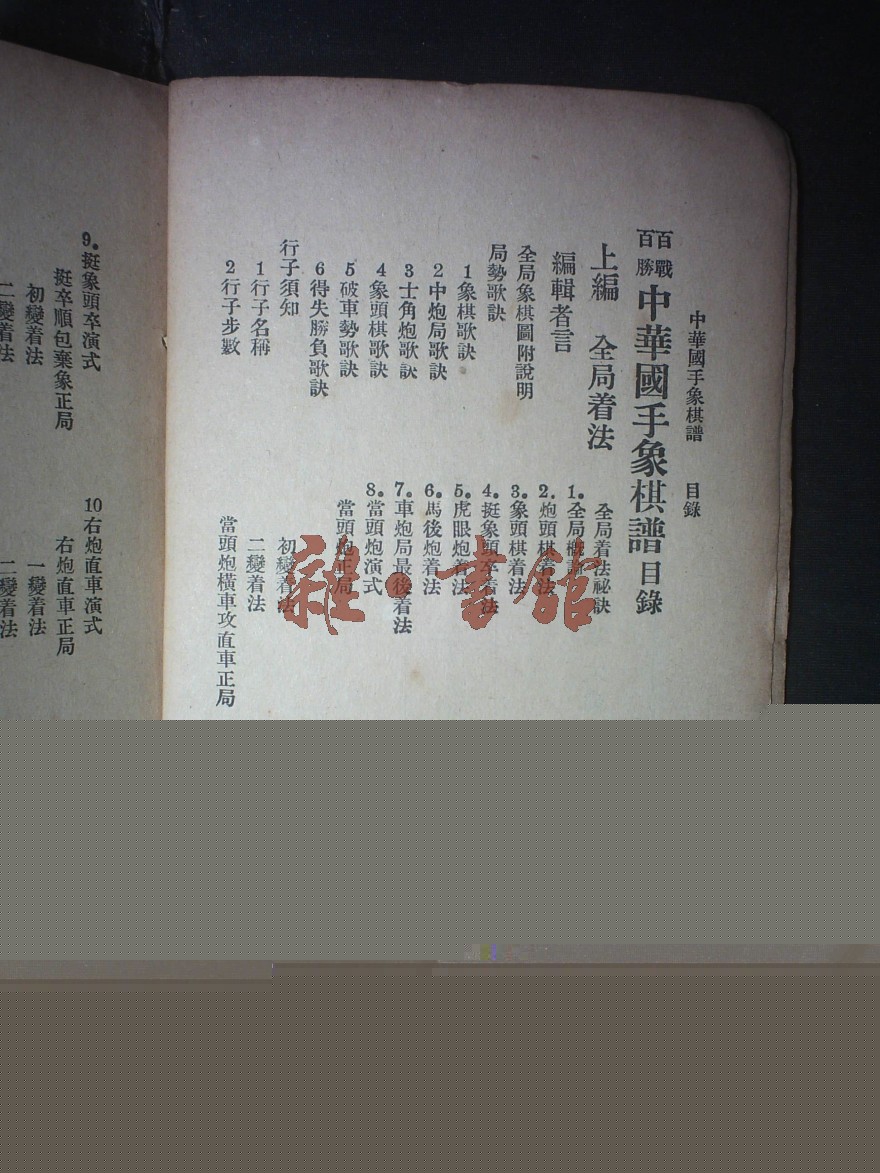 中華國手象棋譜 目錄
百戰百勝 中華國手象棋譜 目錄
上編 全局着法
編輯者言
全局象棋圖附說明
局勢歌訣
1 象棋歌訣
2 中炮局歌訣
3 士角炮歌訣
4 象頭棋歌訣
5 破車勢歌訣
6 得失勝負歌訣
行子須知
1 行子名稱
2 行子步數
全局着法祕訣
1. 全局概論
2. 炮頭棋着法
3. 象頭棋着法
4. 挺象頭卒着法
5. 虎眼炮着法
6. 馬後炮着法
7. 車炮局最後着法
8. 當頭炮演式
當頭炮正局
初變着法
二變着法
當頭炮橫車攻直車正局
9. 挺象頭卒演式
挺卒順包棄象正局
初變着法
二變着法
10 右炮直車演式
右炮直車正局
一變着法
二變着法
雜·書館